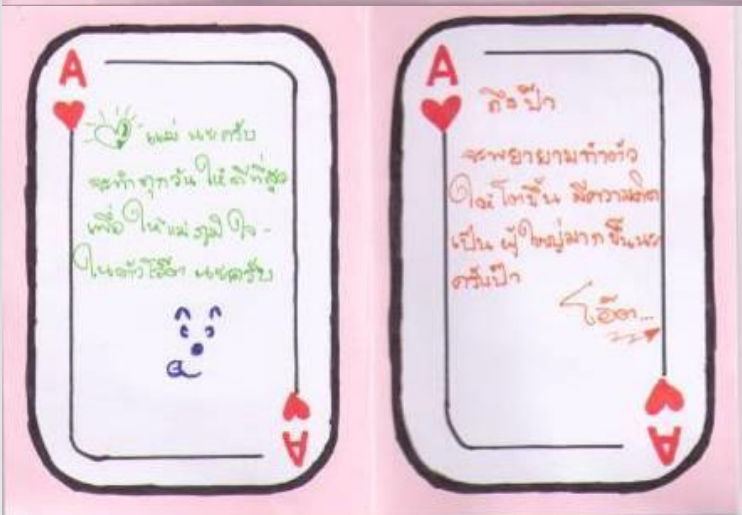 A
แม่ นะครับ
จะทำทุกวันให้ดีที่สุด
เพื่อให้แม่ภูมิใจ-
ในตัวโอ๊ต นะครับ
A
A
ถึงป๊า
จะพยายามทำตัว
ให้โตขึ้น มีความคิด
เป็นผู้ใหญ่มากขึ้นนะ
ครับป๊า
โอ๊ต...
A